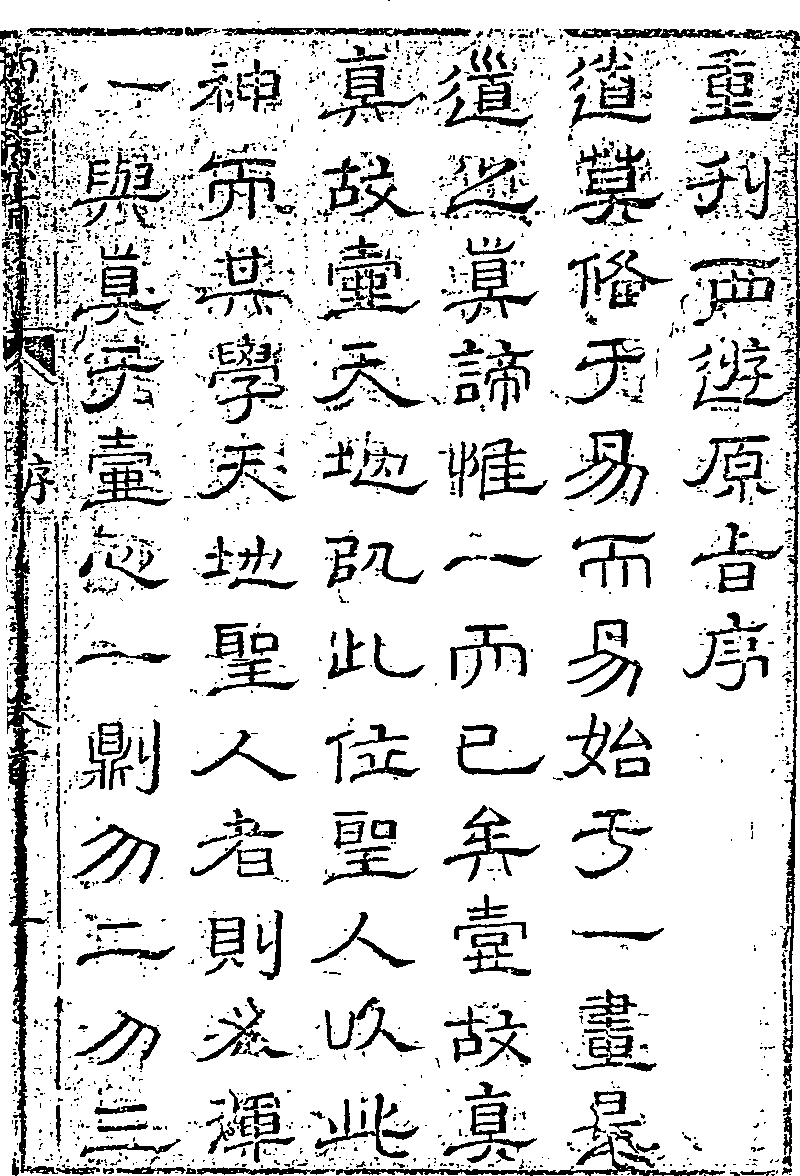 重刊西遊原旨序
道莫偹于易而易始于一畫是
道之真諦惟一而已矣壹故真
真故壹天地㕥此位聖人以此
神而其學天地聖人者則
一與真于壹心一則勿二勿三
西遊原旨 序 卷首 一